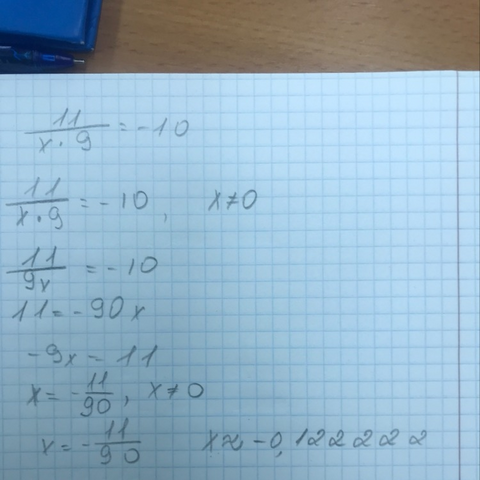 11/(x·9) = -10
11/(x·9) = -10, x≠0
11/9x = -10
11 = -90x
-9x = 11
x = -11/90, x≠0
x = -11/90 x≈-0,1222222